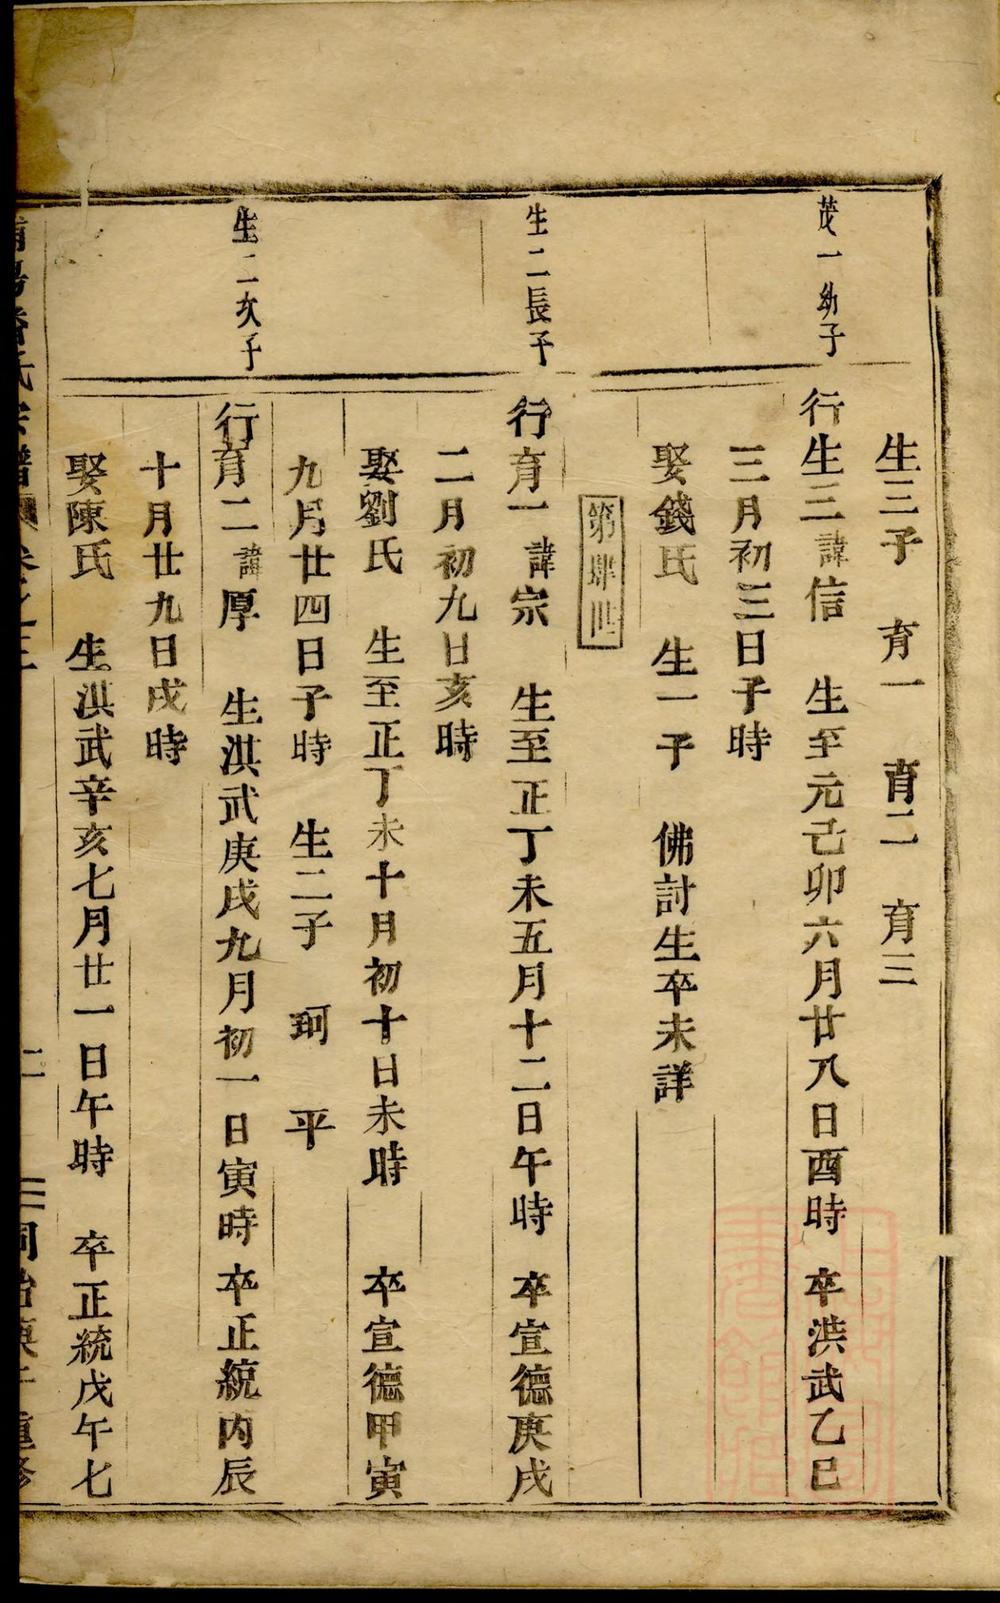 生三子 育一 育二 育三
茂一幼子
行生三諱信 生至元己卯六月廿八日酉時 卒洪武乙巳
三月初三日子時
娶錢氏 生一子 佛討生卒未詳
第肆世
生二長子
行育一諱宗 生至正丁未五月十二日午時 卒宣德庚戌
二月初九日亥時
娶劉氏 生至正丁未十月初十日未時 卒宣德甲寅
九月廿四日子時 生二子 珂 平
生二次子
行育二諱厚 生洪武庚戌九月初一日寅時 卒正統丙辰
十月廿九日戌時
娶陳氏 生洪武辛亥七月廿一日午時 卒正統戊午七
氏宗譜 卷之三 二 同治 重修